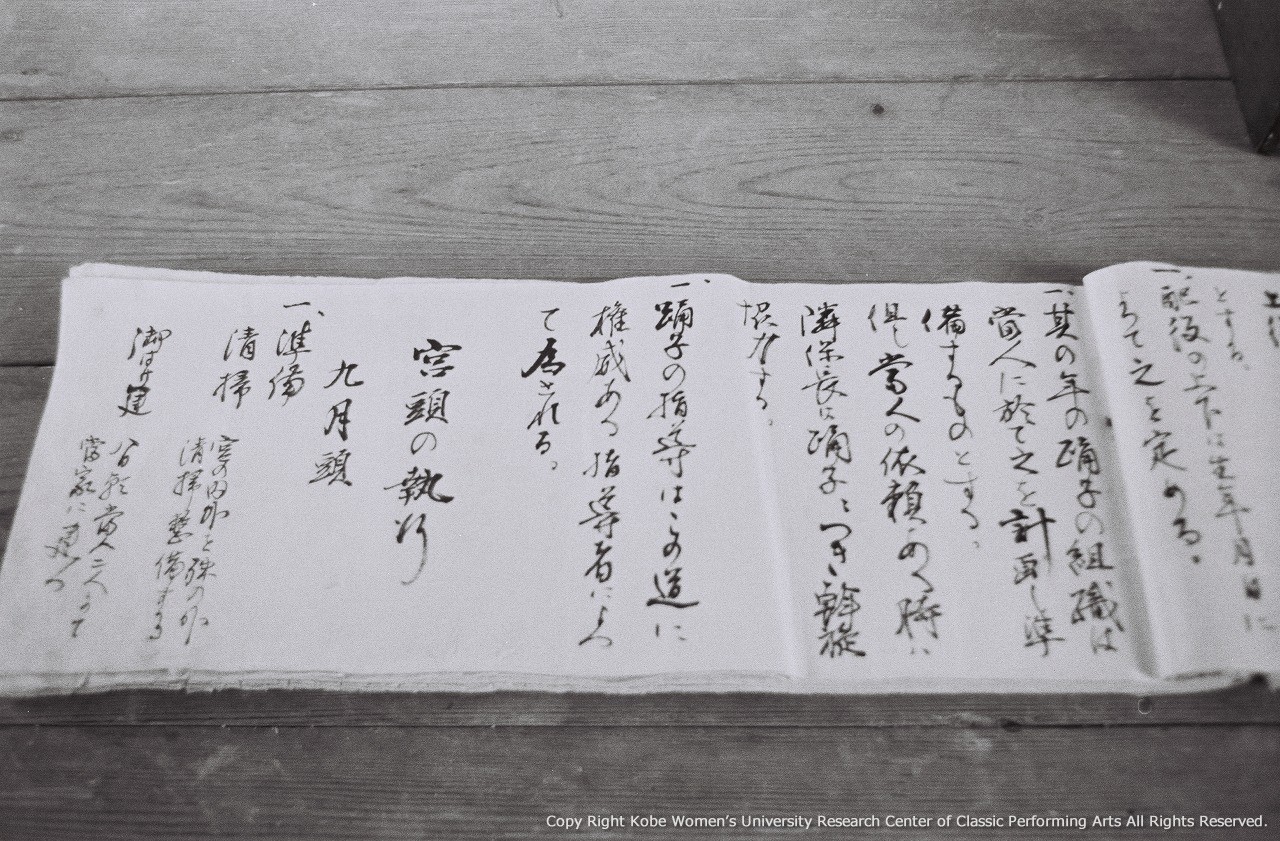 とする。
一、配役の上下は生年月日に
よつて之を定める。
一、其の年の踊子の組織は
當人に於て之を計画し準
備するものとする。
但し當人の依頼ある時は
隣保長は踊子につき斡旋
協力する。
一、踊子の指導はこの道に
権威ある指導者によつ
て為される。
宮頭の執行
九月頭
一、準備
清掃
宮の内外と殊の外
清掃整備する
御はけ建
當人二人にて
當家に建つ
Copy Right Kobe Women's University Research Center of Classic Performing Arts All Rights Reserved.